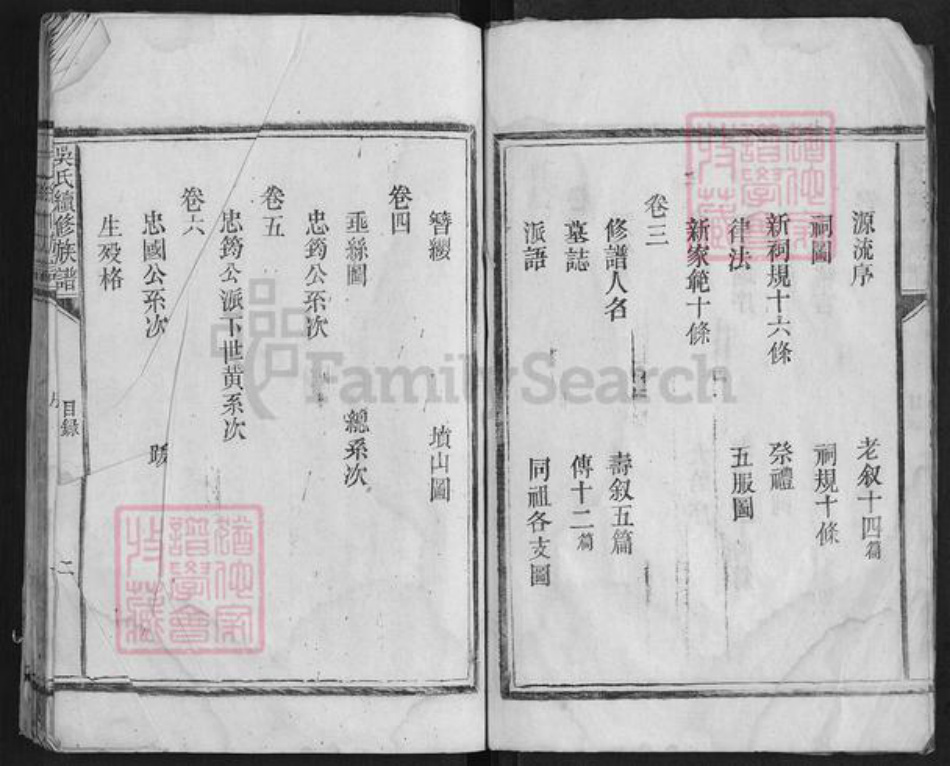 源流序　老叙十四篇
祠圖　祠規十條
新祠規十六條　祭禮
律法　五服圖
新家範十條
卷三
修譜人名　壽叙五篇
墓誌　傳十二篇
派語　同祖各支圖
簪纓　墳山圖
卷四
垂絲圖　總系次
忠筠公系次
卷五
忠筠公派下世黄系次
卷六
忠國公系次
生殁格
吳氏續修族譜
目錄
二
譜學會
收藏
FamilySearch